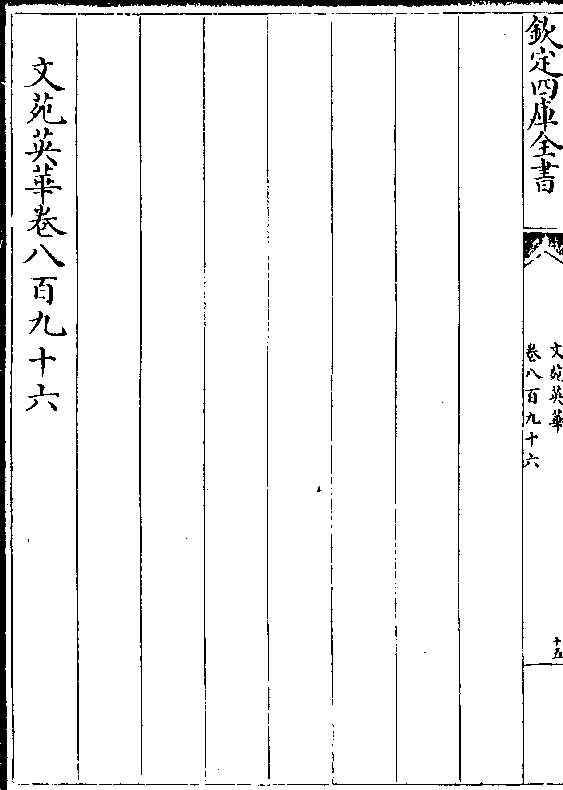 欽定四庫全書
文苑英華
卷八百九十六
十五
文苑英華卷八百九十六